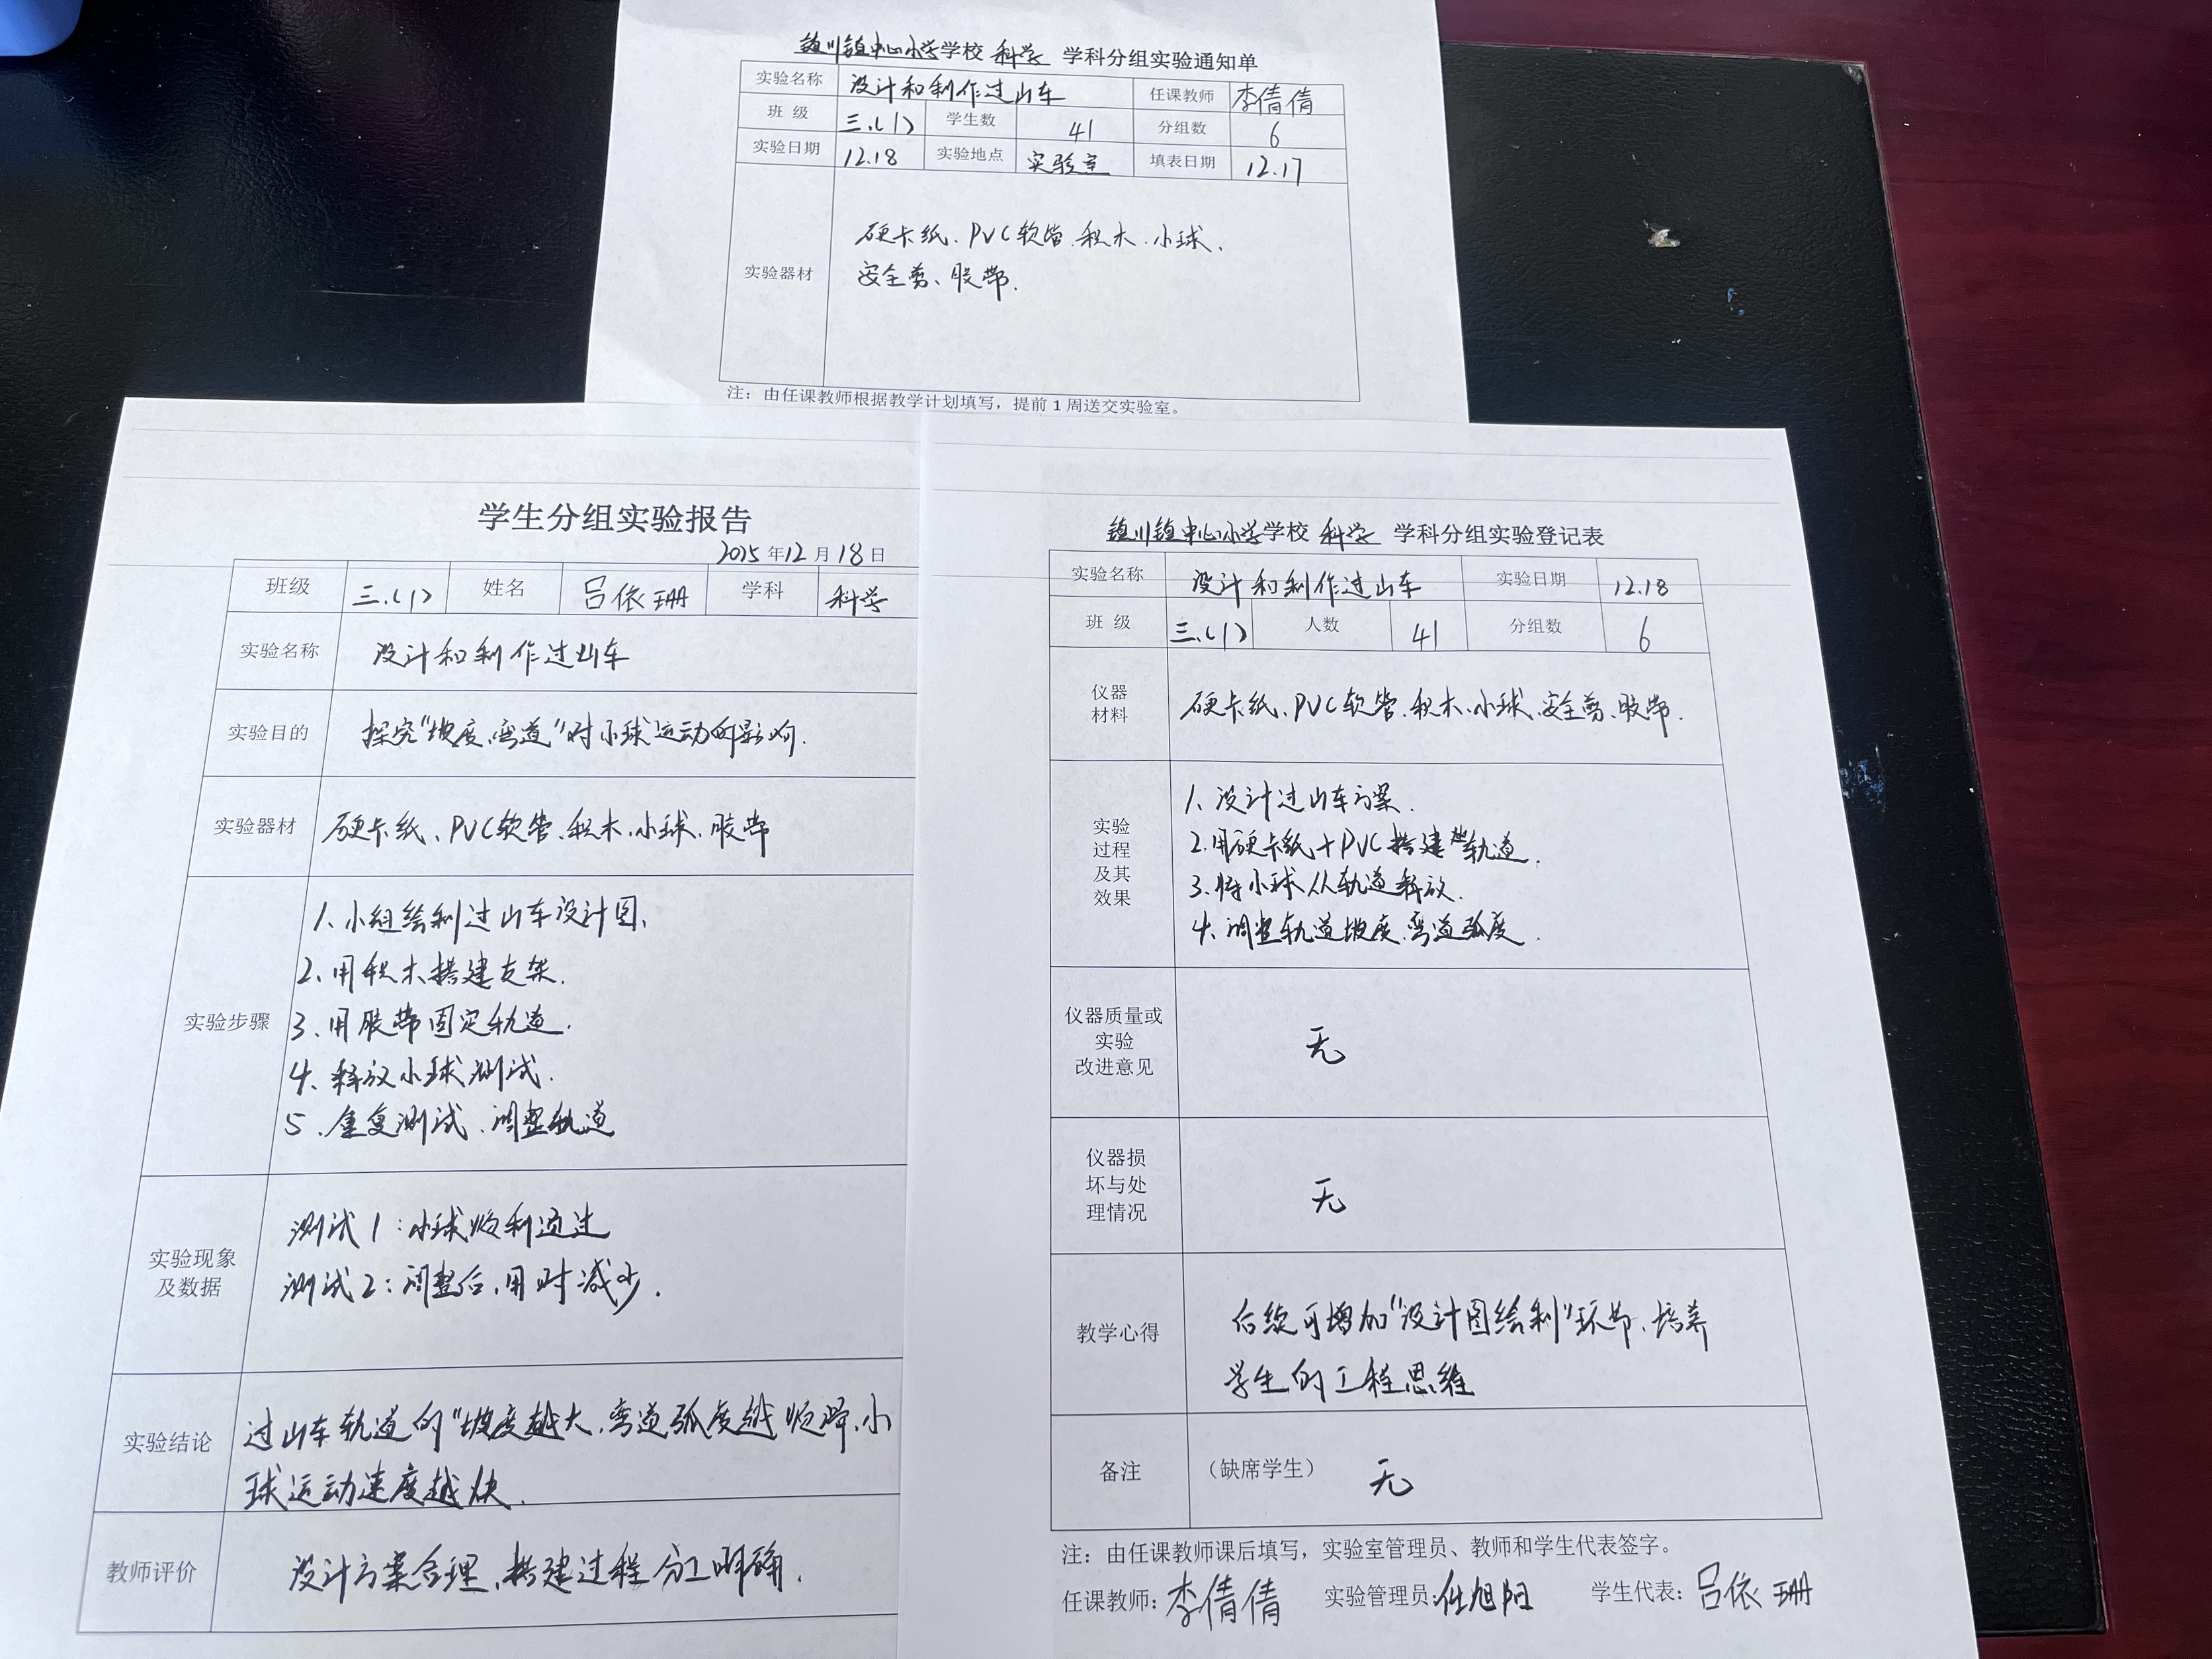 镇川镇中心小学学校 科学 学科分组实验通知单
实验名称 设计和制作过山车 任课教师 李倩倩
班 级 三.(1) 学生数 41 分组数 6
实验日期 12.18 实验地点 实验室 填表日期 12.17
实验器材
硬卡纸、PVC软管、积木、小球、
安全剪、胶带.
注：由任课教师根据教学计划填写，提前 1 周送交实验室。
学生分组实验报告
2025 年 12 月 18 日
班级 三.(1) 姓名 吕依珊 学科 科学
实验名称 设计和制作过山车
实验目的 探究"坡度、弯道"对小球运动的影响.
实验器材 硬卡纸、PVC软管、积木、小球、胶带
实验步骤
1、小组绘制过山车设计图、
2、用积木搭建支架.
3、用胶带固定轨道.
4、释放小球测试.
5、重复测试、调整轨道
实验现象
及数据
测试1：小球顺利通过
测试2：调整后,用时减少.
实验结论
过山车轨道的"坡度越大、弯道弧度越顺滑、小
球运动速度越快.
教师评价 设计方案合理、搭建过程分工明确.
镇川镇中心小学学校 科学 学科分组实验登记表
实验名称 设计和制作过山车 实验日期 12.18
班 级 三.(1) 人数 41 分组数 6
仪器
材料
硬卡纸、PVC软管、积木、小球、安全剪、胶带.
实验
过程
及其
效果
1、设计过山车方案.
2.用硬卡纸+PVC搭建轨道.
3.将小球从轨道释放.
4、调整轨道坡度、弯道弧度.
仪器质量或
实验
改进意见
无
仪器损
坏与处
理情况
无
教学心得
后续可增加"设计图绘制"环节、培养
学生的工程思维
备注 （缺席学生） 无
注：由任课教师课后填写，实验室管理员、教师和学生代表签字。
任课教师：李倩倩 实验管理员：任旭阳 学生代表：吕依珊